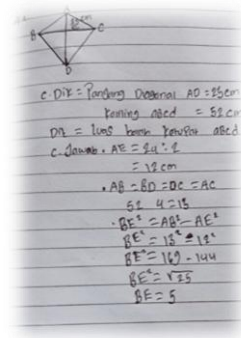 A
B
C
D
C. Dik = Panjang Diagonal AD = 25cm
Keliling abcd = 52 cm
Dit = luas belah ketupat abcd
C. Jawab. AE = 24 : 2
= 12 cm
• AB = BD = DC = AC
52 4 = 13
• BE² = AB² - AE²
BE² = 13² - 12²
BE² = 169 - 144
BE² = √25
BE = 5